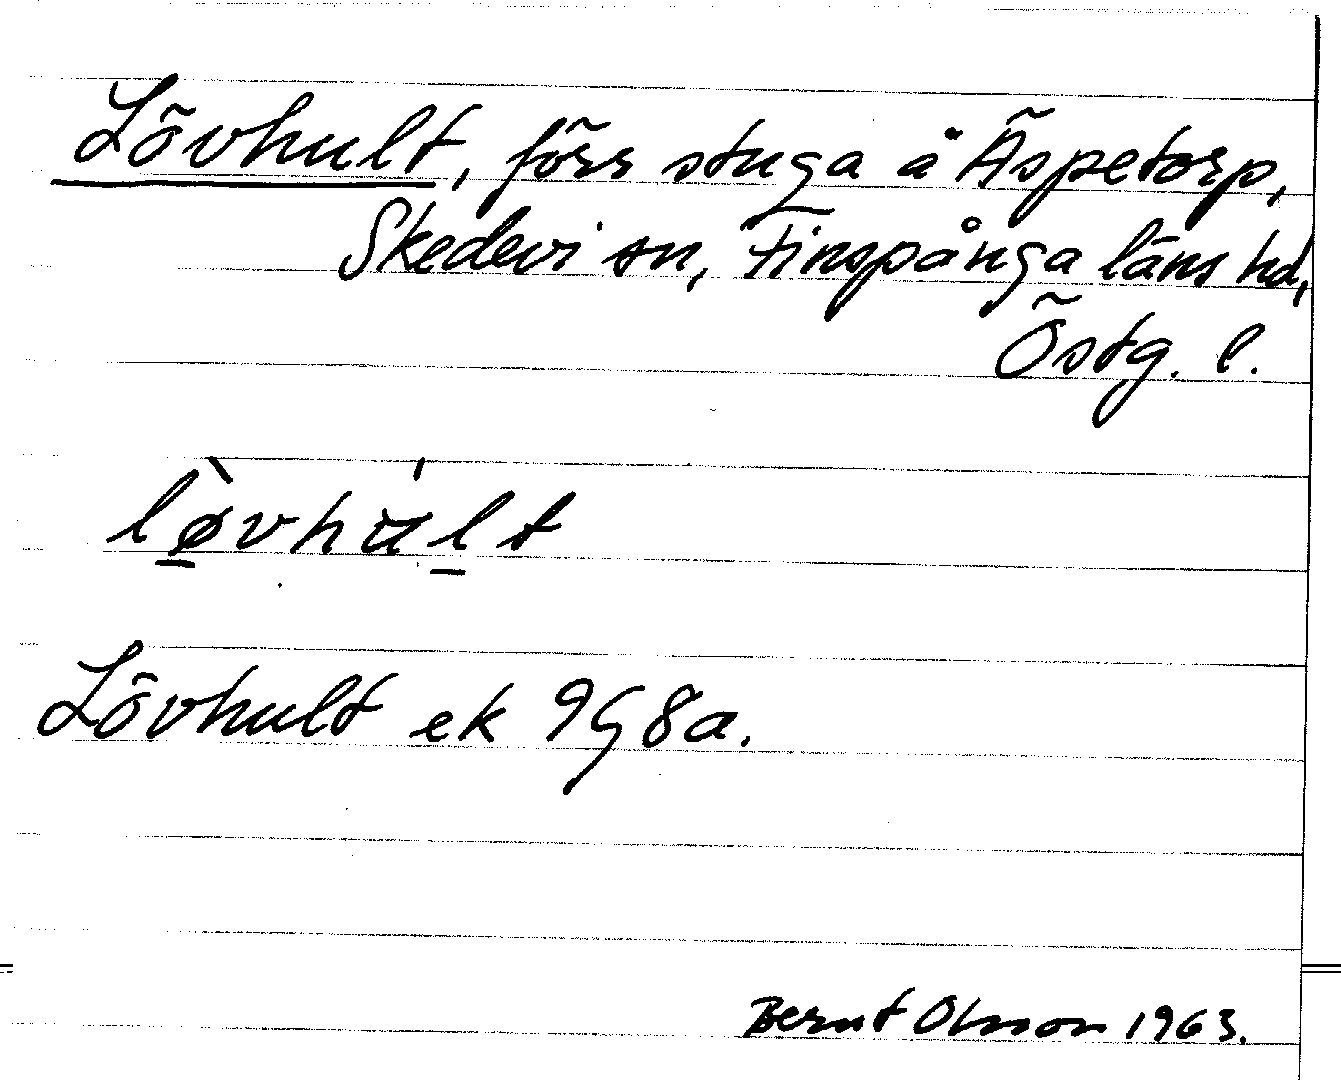 Lövhult, förr stuga å Äspetorp,
Skedevi sn, Finspånga läns hd,
Östg. l.
lø̀vhu̇lt
Lövhult ek 9G8a.
Bernt Olsson 1963.